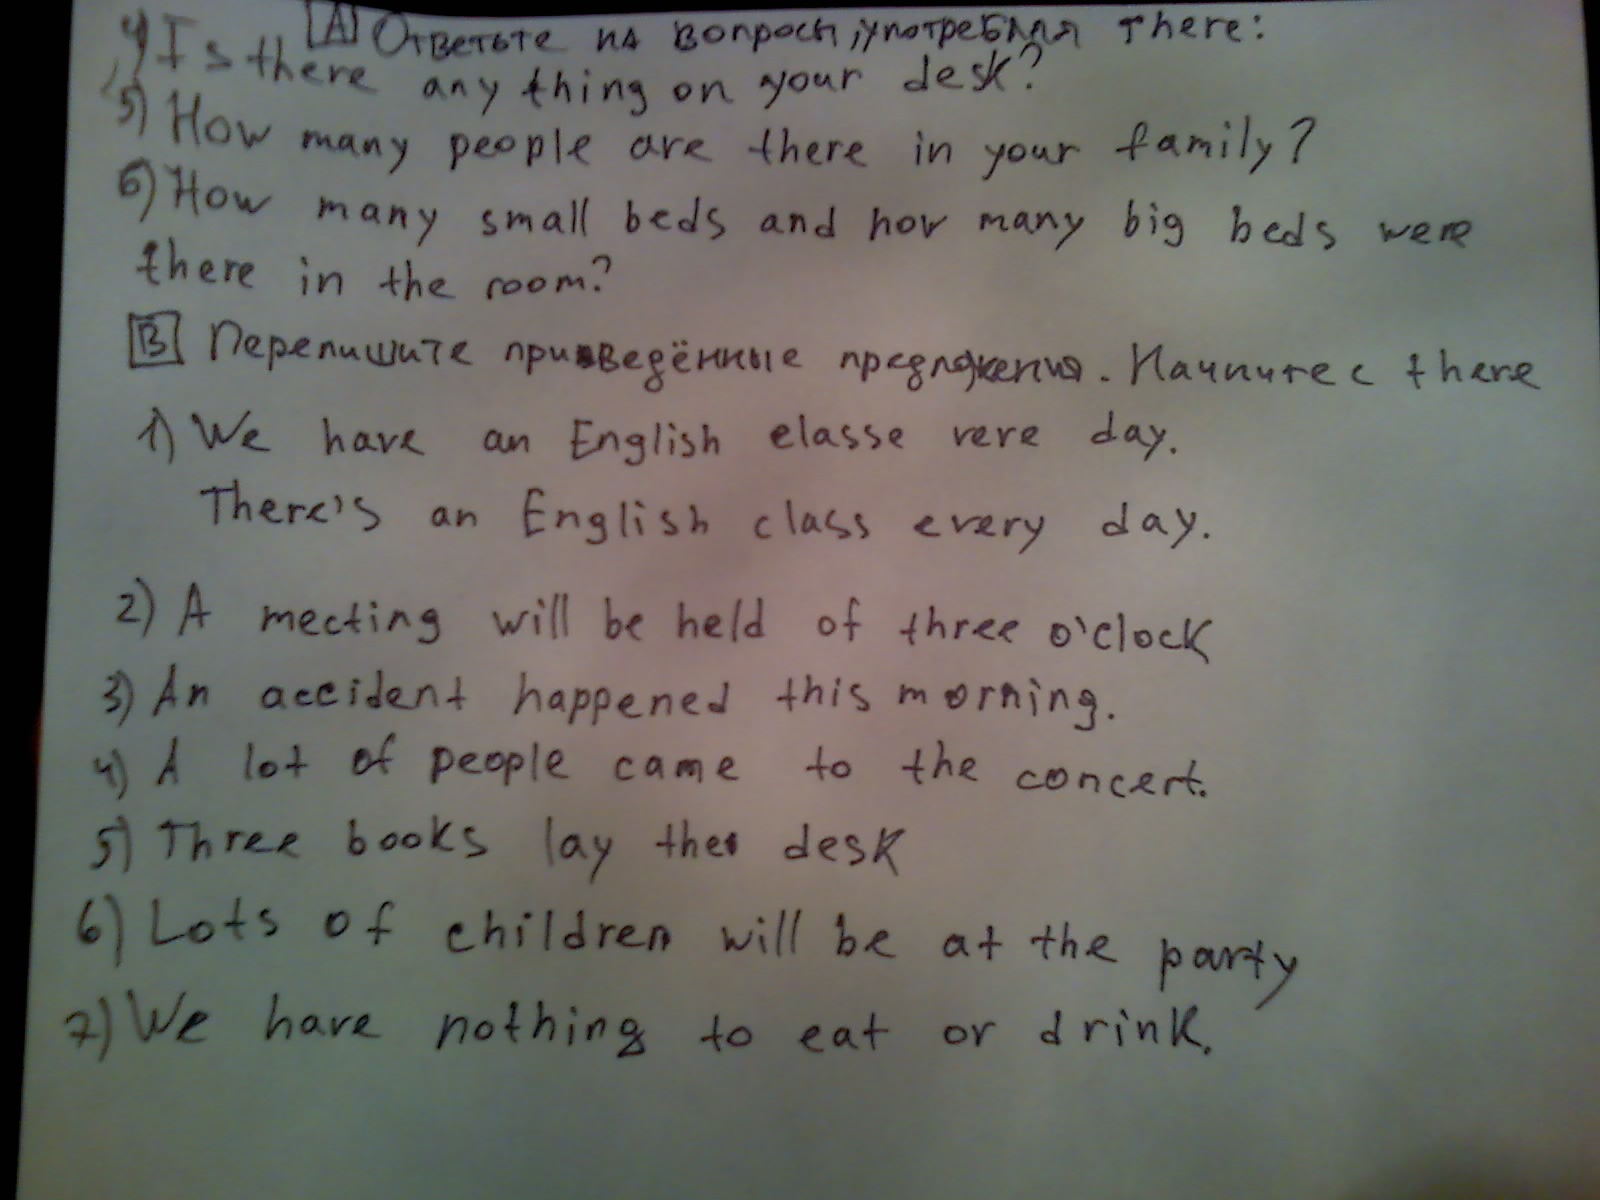 A Ответьте на вопросы, употребляя There:
4) Is there any thing on your desk?
5) How many people are there in your family?
6) How many small beds and hov many big beds were
there in the room?
B Перепишите приведённые предложения. Начните с there
1) We have an English elasse vere day.
There's an English class every day.
2) A mecting will be held of three o'clock
3) An accident happened this morning.
4) A lot of people came to the concert.
5) Three books lay the desk
6) Lots of children will be at the party
7) We have nothing to eat or drink.